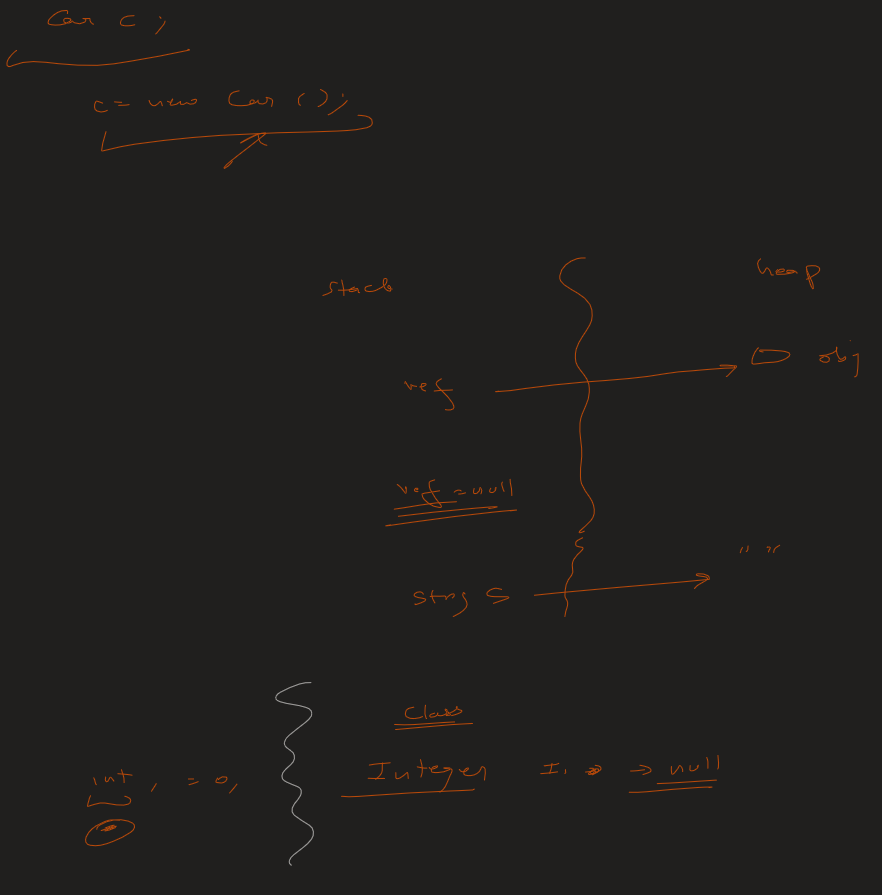 Car c ;
c = new Car ( ) ;
stack
heap
ref
obj
ref = null
" "
String S
Class
int , = 0 ,
Integer I , → null